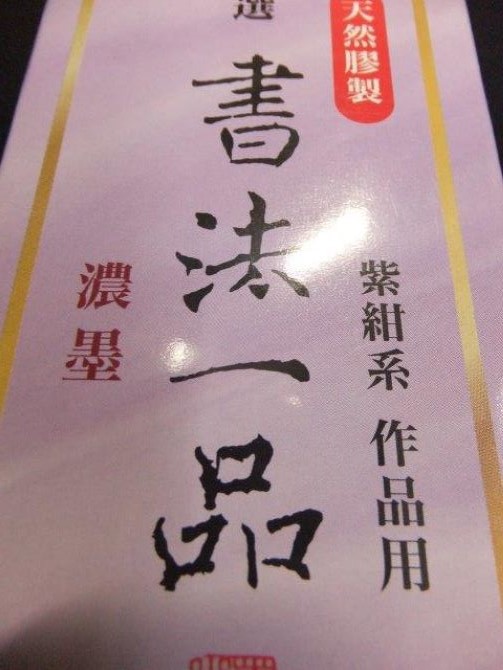 天然膠製
紫紺系 作品用
選
書法一品
濃墨